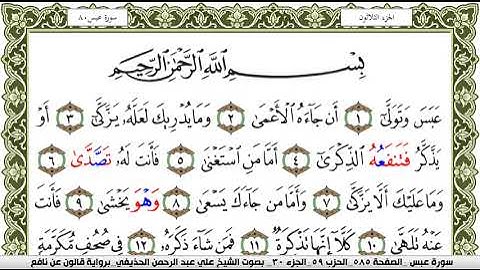 الجزء الثلاثون
سورة عبس ٨٠
بِسْمِ اللَّهِ الرَّحْمَٰنِ الرَّحِيمِ
عَبَسَ وَتَوَلَّىٰ ١ أَن جَآءَهُ الْأَعْمَىٰ ٢ وَمَا يُدْرِيكَ لَعَلَّهُ يَزَّكَّىٰ ٣ أَوْ
يَذَّكَّرُ فَتَنفَعُهُ الذِّكْرَىٰ ٤ أَمَّا مَنِ اسْتَغْنَىٰ ٥ فَأَنتَ لَهُ تَصَّدَّىٰ ٦
وَمَا عَلَيْكَ أَلَّا يَزَّكَّىٰ ٧ وَأَمَّا مَن جَآءَكَ يَسْعَىٰ ٨ وَهْوَ يَخْشَىٰ ٩ فَأَنتَ
عَنْهُ تَلَهَّىٰ ١٠ كَلَّا إِنَّهَا تَذْكِرَةٌ ١١ فَمَن شَآءَ ذَكَرَهُ ١٢ فِي صُحُفٍ مُّكَرَّمَةٍ
سورة عبس _ الصفحة ٥٨٥ _ الحزب ٥٩ _ الجزء ٣٠ _ بصوت الشيخ علي عبد الرحمن الحذيفي _ برواية قالون عن نافع